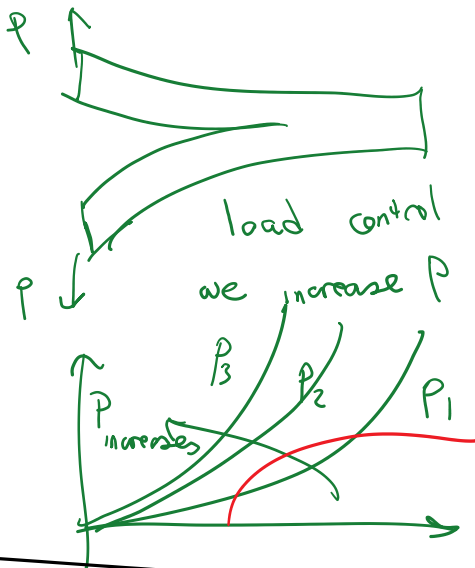 P
load control
P
we increase P
P3
P2
P1
P
increases